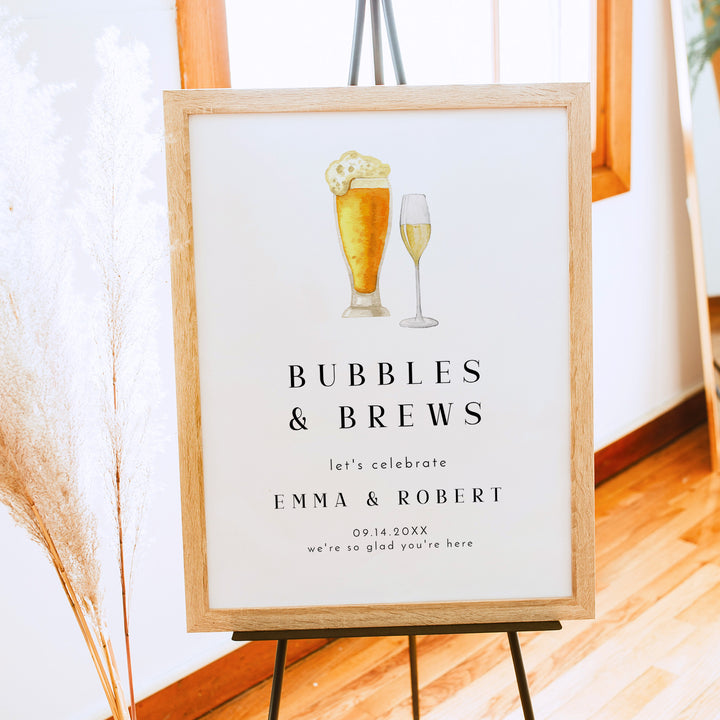 BUBBLES
& BREWS
let's celebrate
EMMA & ROBERT
09.14.20XX
we're so glad you're here